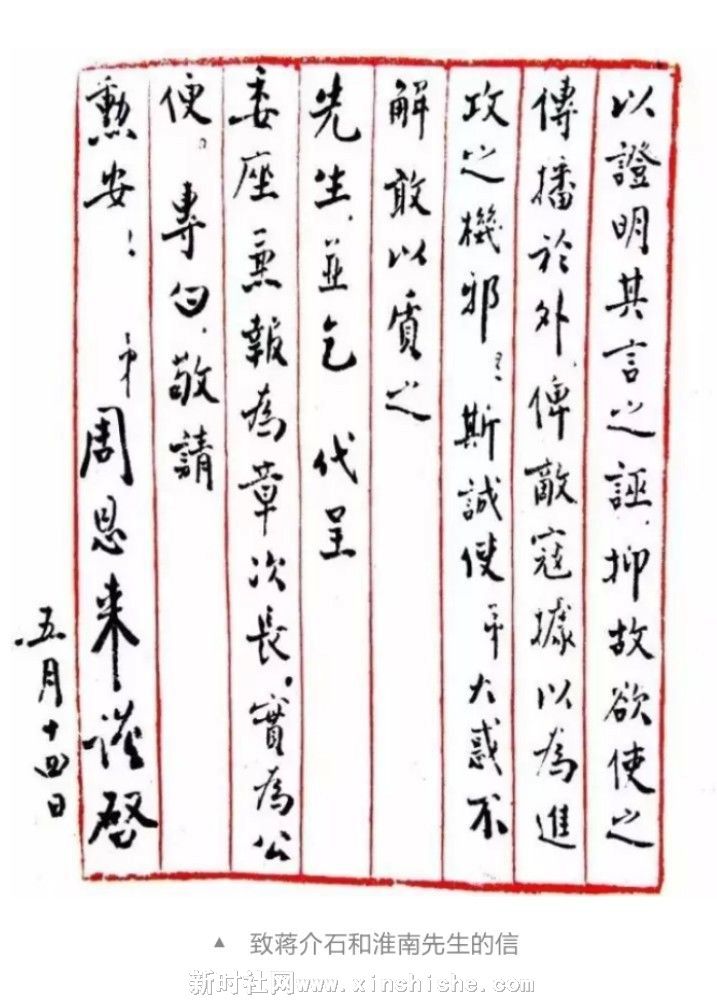 以證明其言之誣，抑故欲使之
傳播於外，俾敵寇據以為進
攻之機邪！斯誠使弟大惑不
解敢以質之
先生，並乞 代呈
委座兼報為章次長，實為公
便。專白，敬請
勳安！ 弟 周恩来謹啓
五月十四日
▲ 致蒋介石和淮南先生的信
新时社网www.xinshishe.com